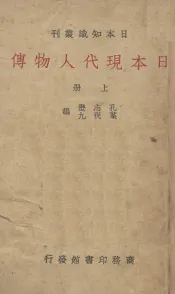 日本知識叢刊
日本現代人物傳
上冊
孔志澄
葉祝九
編
商務印書館發行